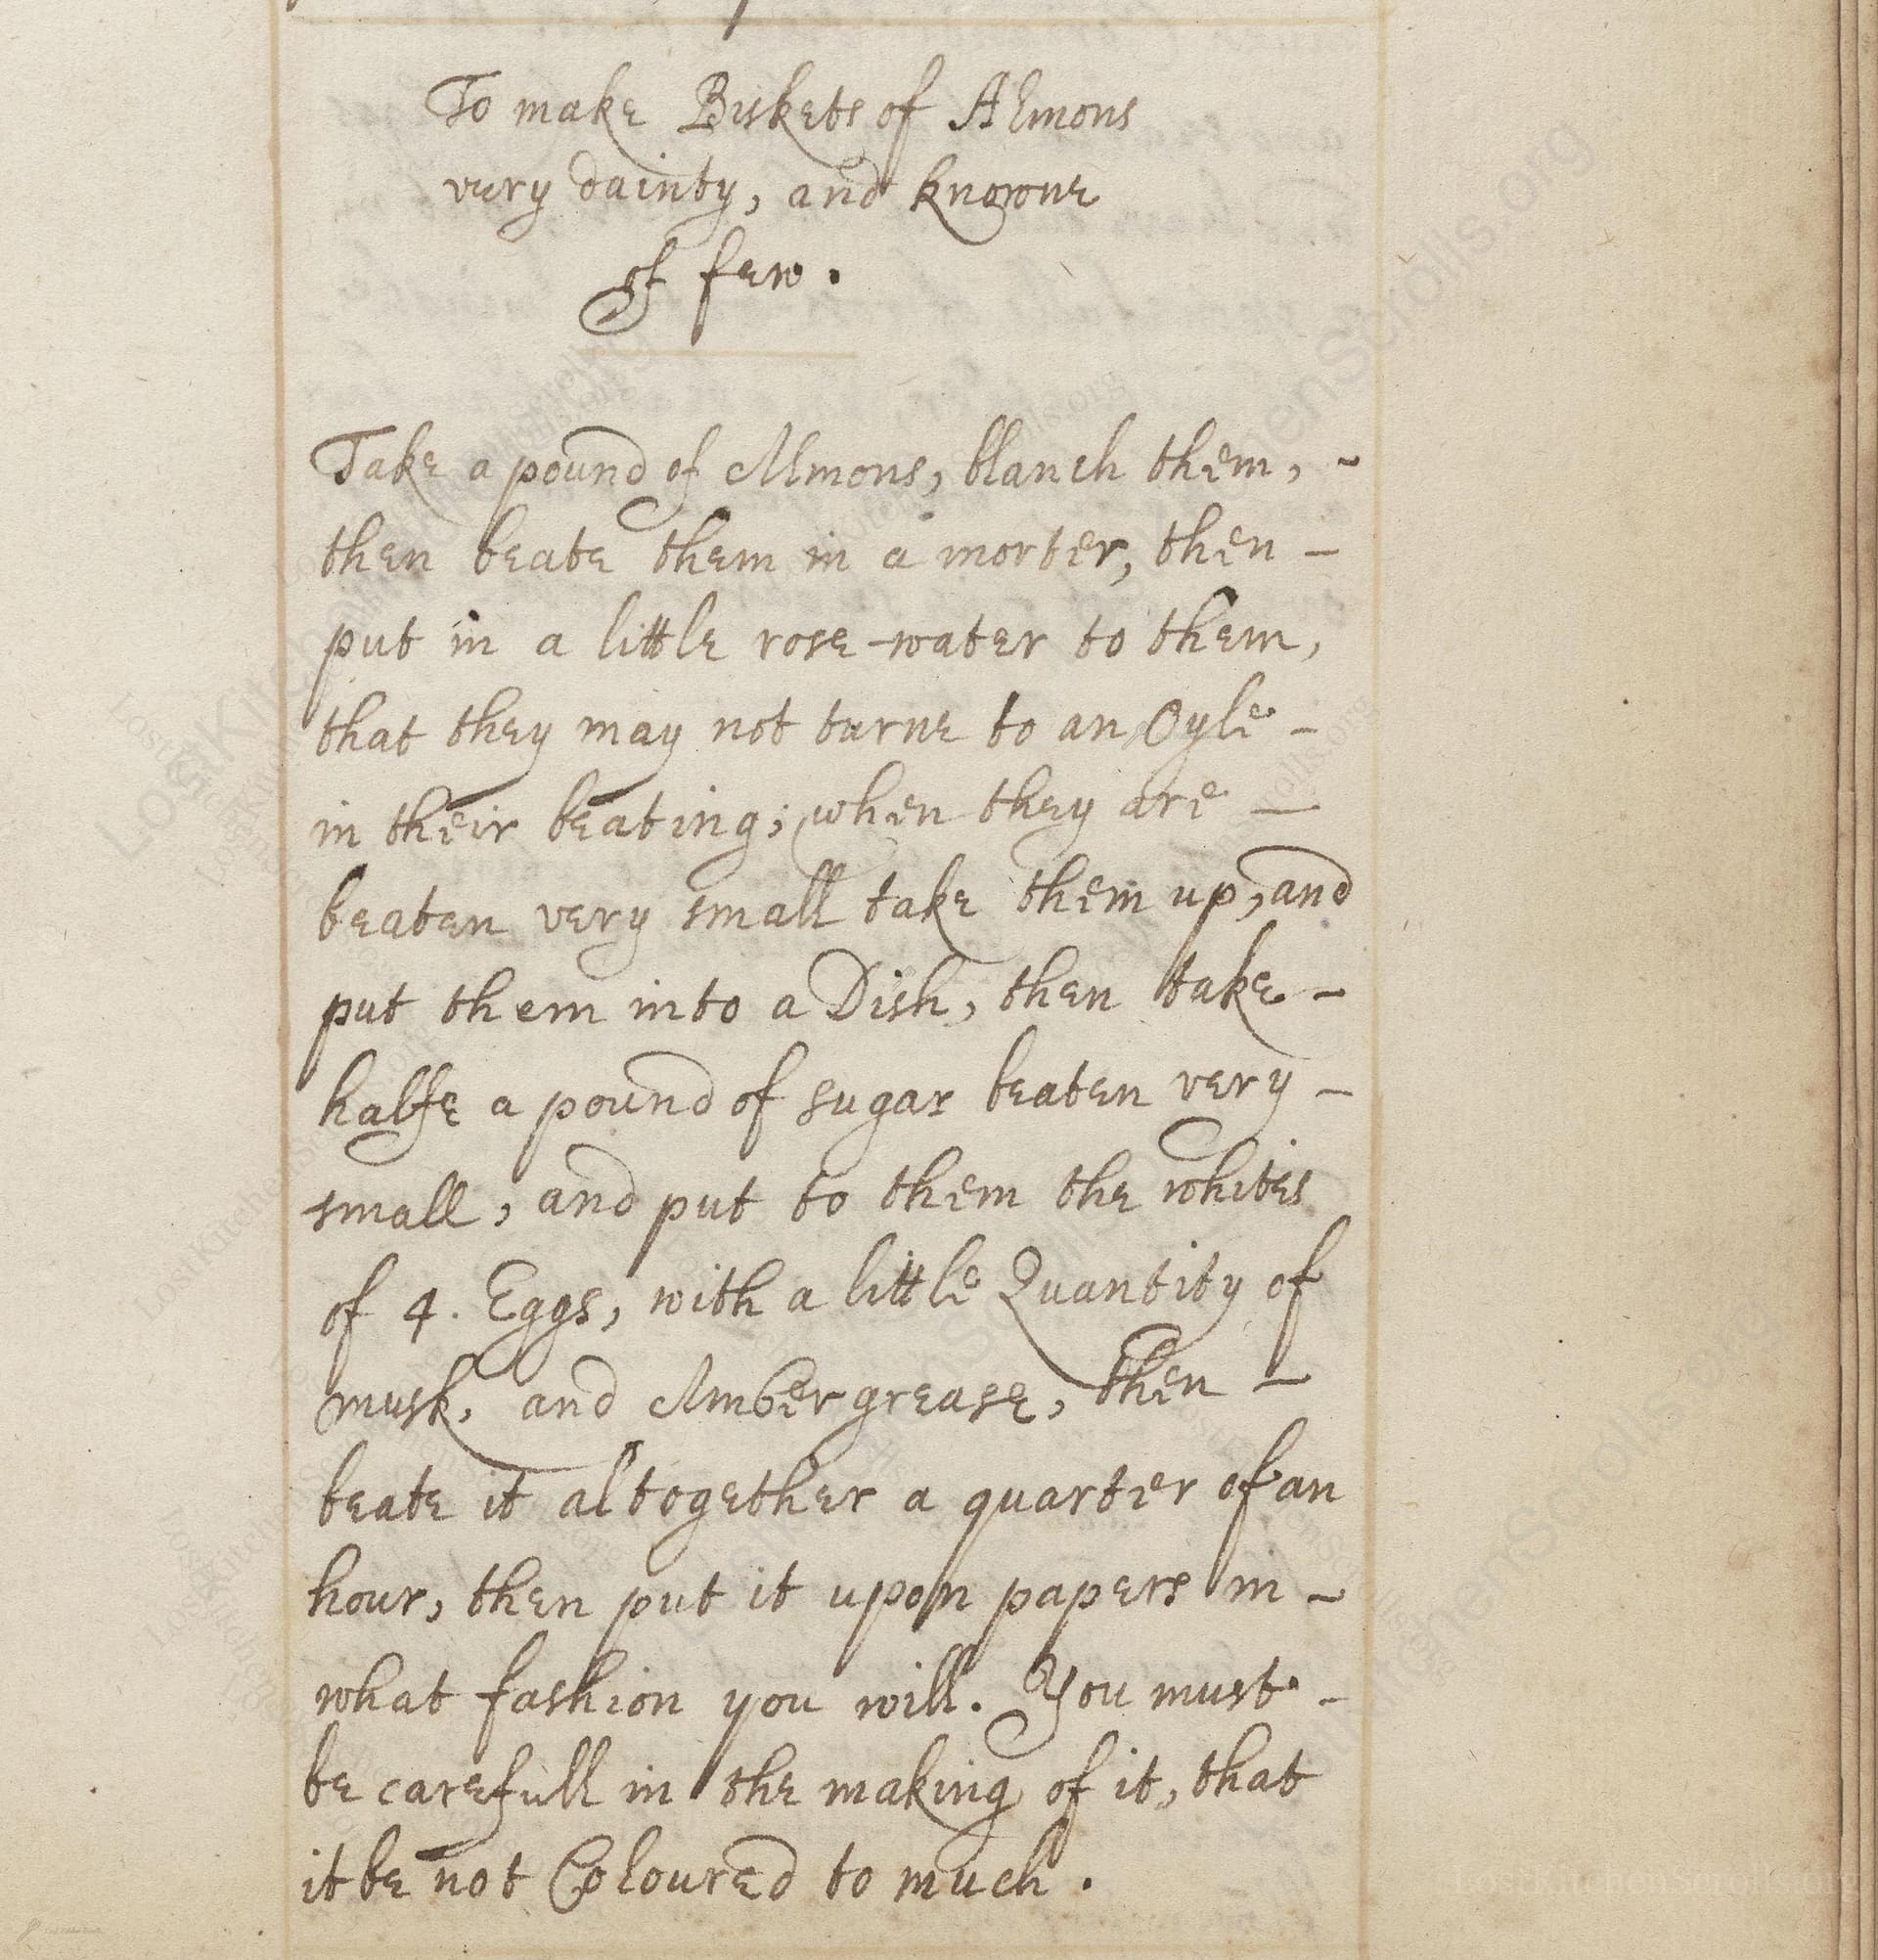 To make Biskets of Almons
very dainty, and knowne
of few.
Take a pound of Almons, blanch them, -
then beate them in a morter, then -
put in a little rose-water to them,
that they may not turne to an Oyle -
in their beating; when they are -
beaten very small take them up, and
put them into a Dish, then take -
halfe a pound of sugar beaten very -
small, and put to them the whites
of 4. Eggs, with a little Quantity of
musk, and Ambergrease, then -
beate it altogether a quarter of an
hour, then put it upon papers in -
what fashion you will. You must -
be carefull in the making of it, that
it be not Coloured to much.
LostKitchenScrolls.org